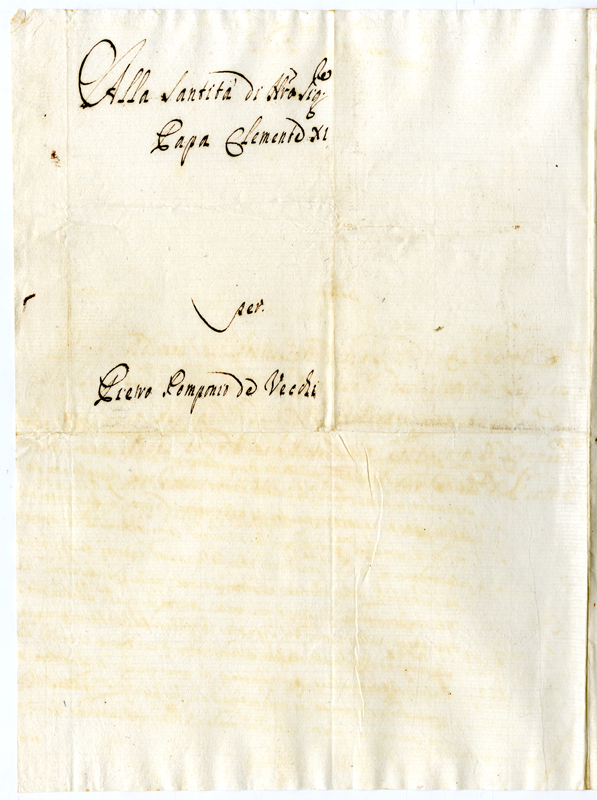 Alla Santità di Nro Sig.re
Papa Clemente XI
per
Pietro Pomponio de Vecchi